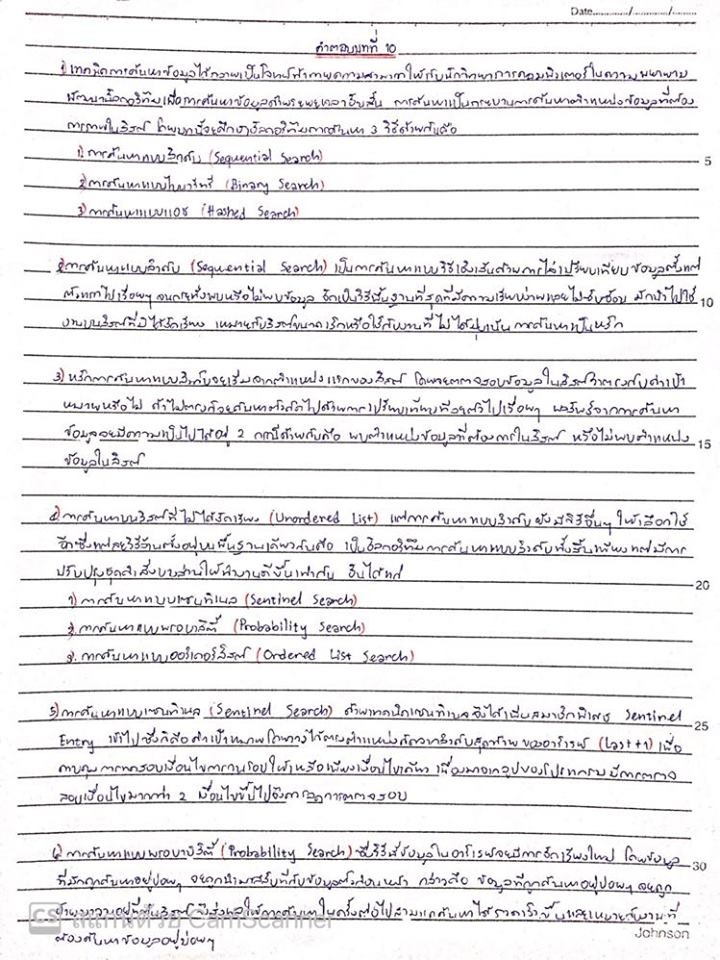 Date............/............/............
คำตอบบทที่ 10
1) เทคนิคการค้นหาข้อมูลได้กลายเป็นโจทย์ท้าทายความสามารถให้กับนักวิทยาการคอมพิวเตอร์ในความพยายาม
พัฒนาอัลกอริทึมเพื่อการค้นหาข้อมูลด้วยระยะเวลาอันสั้น การค้นหาเป็นกระบวนการค้นหาตำแหน่งข้อมูลที่ต้อง
การภายในลิสต์ โดยบทนี้จะศึกษาอัลกอริทึมการค้นหา 3 วิธีด้วยกันคือ
1) การค้นหาแบบลำดับ (Sequential Search)
5
2) การค้นหาแบบไบนารีทรี (Binary Search)
3) การค้นหาแบบแฮช (Hashed Search)
2) การค้นหาแบบลำดับ (Sequential Search) เป็นการค้นหาแบบวิธีเชิงเส้นด้วยการไล่เปรียบเทียบข้อมูลตั้งแต่
ตัวแรกไปเรื่อยๆ จนกระทั่งพบหรือไม่พบข้อมูล จัดเป็นวิธีพื้นฐานที่สุดที่มีความเรียบง่ายและไม่ซับซ้อม มักนำไปใช้
10
งานบนลิสต์ที่มิได้จัดเรียง เหมาะกับลิสต์ขนาดเล็กหรือใช้กับงานที่ไม่ได้มุ่งเน้นการค้นหาเป็นหลัก
3) หลักการค้นหาแบบลำดับจะเริ่มจากตำแหน่งแรกของลิสต์ โดยจะตรวจสอบข้อมูลในลิสต์ว่าตรงกับค่าเป้า
หมายหรือไม่ ถ้าไม่ตรงก็จะค้นหาตัวถัดไปด้วยการเปรียบเทียบทีละตัวไปเรื่อยๆ ผลลัพธ์จากการค้นหา
ข้อมูลจะมีความเป็นไปได้อยู่ 2 กรณีด้วยกันคือ พบตำแหน่งข้อมูลที่ต้องการในลิสต์ หรือไม่พบตำแหน่ง
15
ข้อมูลในลิสต์
4) การค้นหาบนลิสต์ที่ไม่ได้จัดเรียง (Unordered List) แต่การค้นหาแบบลำดับยังมีวิธีอื่นๆ ให้เลือกใช้
อีกซึ่งแต่ละวิธีล้วนตั้งอยู่บนพื้นฐานเดียวกันคือ เป็นอัลกอริทึมการค้นหาแบบลำดับทั้งสิ้นเพียงแต่มีการ
ปรับปรุงชุดคำสั่งบางส่วนให้ทำงานดีขึ้นเท่านั้น อันได้แก่
20
1) การค้นหาแบบเซนทิเนล (Sentinel Search)
2. การค้นหาแบบพรอบาบิลิตี้ (Probability Search)
3. การค้นหาแบบออร์เดอร์ลิสต์ (Ordered List Search)
5) การค้นหาแบบเซนทิเนล (Sentinel Search) ด้วยเทคนิคเซนทิเนลจึงได้เพิ่มสมาชิกพิเศษ Sentinel
25
Entry เข้าไปซึ่งก็คือค่าเป้าหมายโดยวางไว้ตรงตำแหน่งถัดจากลำดับสุดท้ายของอาร์เรย์ (Last+1) เพื่อ
ควบคุมการทดสอบเงื่อนไขการวนรอบให้เหลือเพียงเงื่อนไขเดียว เนื่องจากลูปของโปรแกรมมีการตรวจ
สอบเงื่อนไขมากกว่า 2 เงื่อนไขขึ้นไปจึงควรลดการตรวจสอบ
6) การค้นหาแบบพรอบาบิลิตี้ (Probability Search) ซึ่งวิธีนี้ข้อมูลในอาร์เรย์จะมีการจัดเรียงใหม่ โดยข้อมูล
30
ที่มักถูกค้นหาอยู่บ่อยๆ จะถูกนำมาสลับที่กับข้อมูลตัวก่อนหน้า กล่าวคือ ข้อมูลที่ถูกค้นหาอยู่บ่อยๆ จะถูก
ย้ายมาวางอยู่ที่ต้นลิสต์ จึงส่งผลให้การค้นหาในครั้งต่อไปสามารถค้นหาได้รวดเร็วขึ้นและเหมาะกับงานที่
CS สแกนด้วย CamScanner
Johnson
ต้องค้นหาข้อมูลอยู่บ่อยๆ